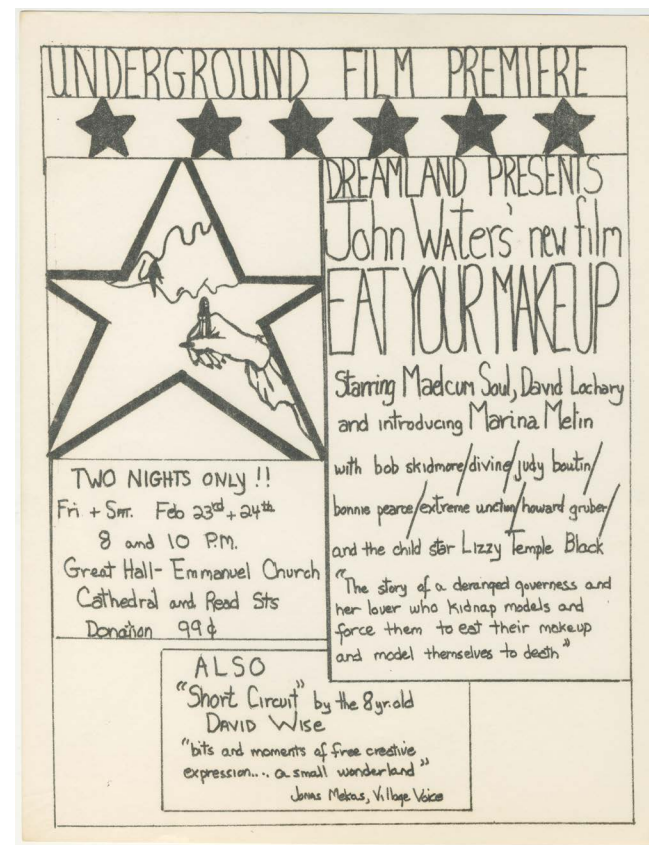 UNDERGROUND FILM PREMIERE
DREAMLAND PRESENTS
John WATers' new film
EAT YOUR MAKEUP
Starring Maelcum Soul, David Lochary
and introducing Marina Melin
with bob skidmore/divine/judy boutin/
bonnie pearce/extreme unction/howard gruber/
and the child star Lizzy Temple Black
"The story of a deranged governess and
her lover who kidnap models and
force them to eat their makeup
and model themselves to death"
TWO NIGHTS ONLY !!
Fri + SAT. Feb 23rd + 24th
8 and 10 P.M.
Great Hall- Emmanuel Church
Cathedral and Read Sts
Donation 99¢
ALSO
"Short Circuit" by the 8 yr. old
DAVID WISE
"bits and moments of free creative
expression... a small wonderland"
Jonas Mekas, Village Voice